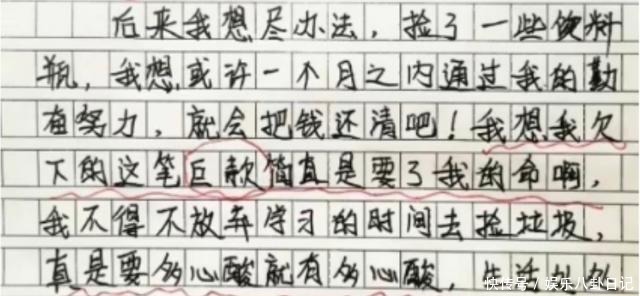 后来我想尽办法，捡了一些饮料
瓶，我想或许一个月之内通过我的勤
奋努力，就会把钱还清吧！我想我欠
下的这笔巨款简直是要了我的命啊，
我不得不放弃学习的时间去捡垃圾，
真是要多心酸就有多心酸，生活
快传号／娱乐八卦日记